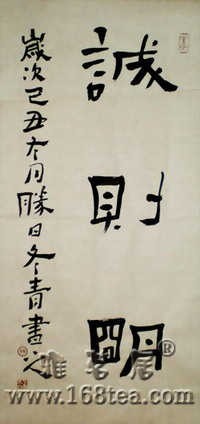 誠則明
歲次己丑月勝日冬青書之
雅茗居®
www.168tea.com